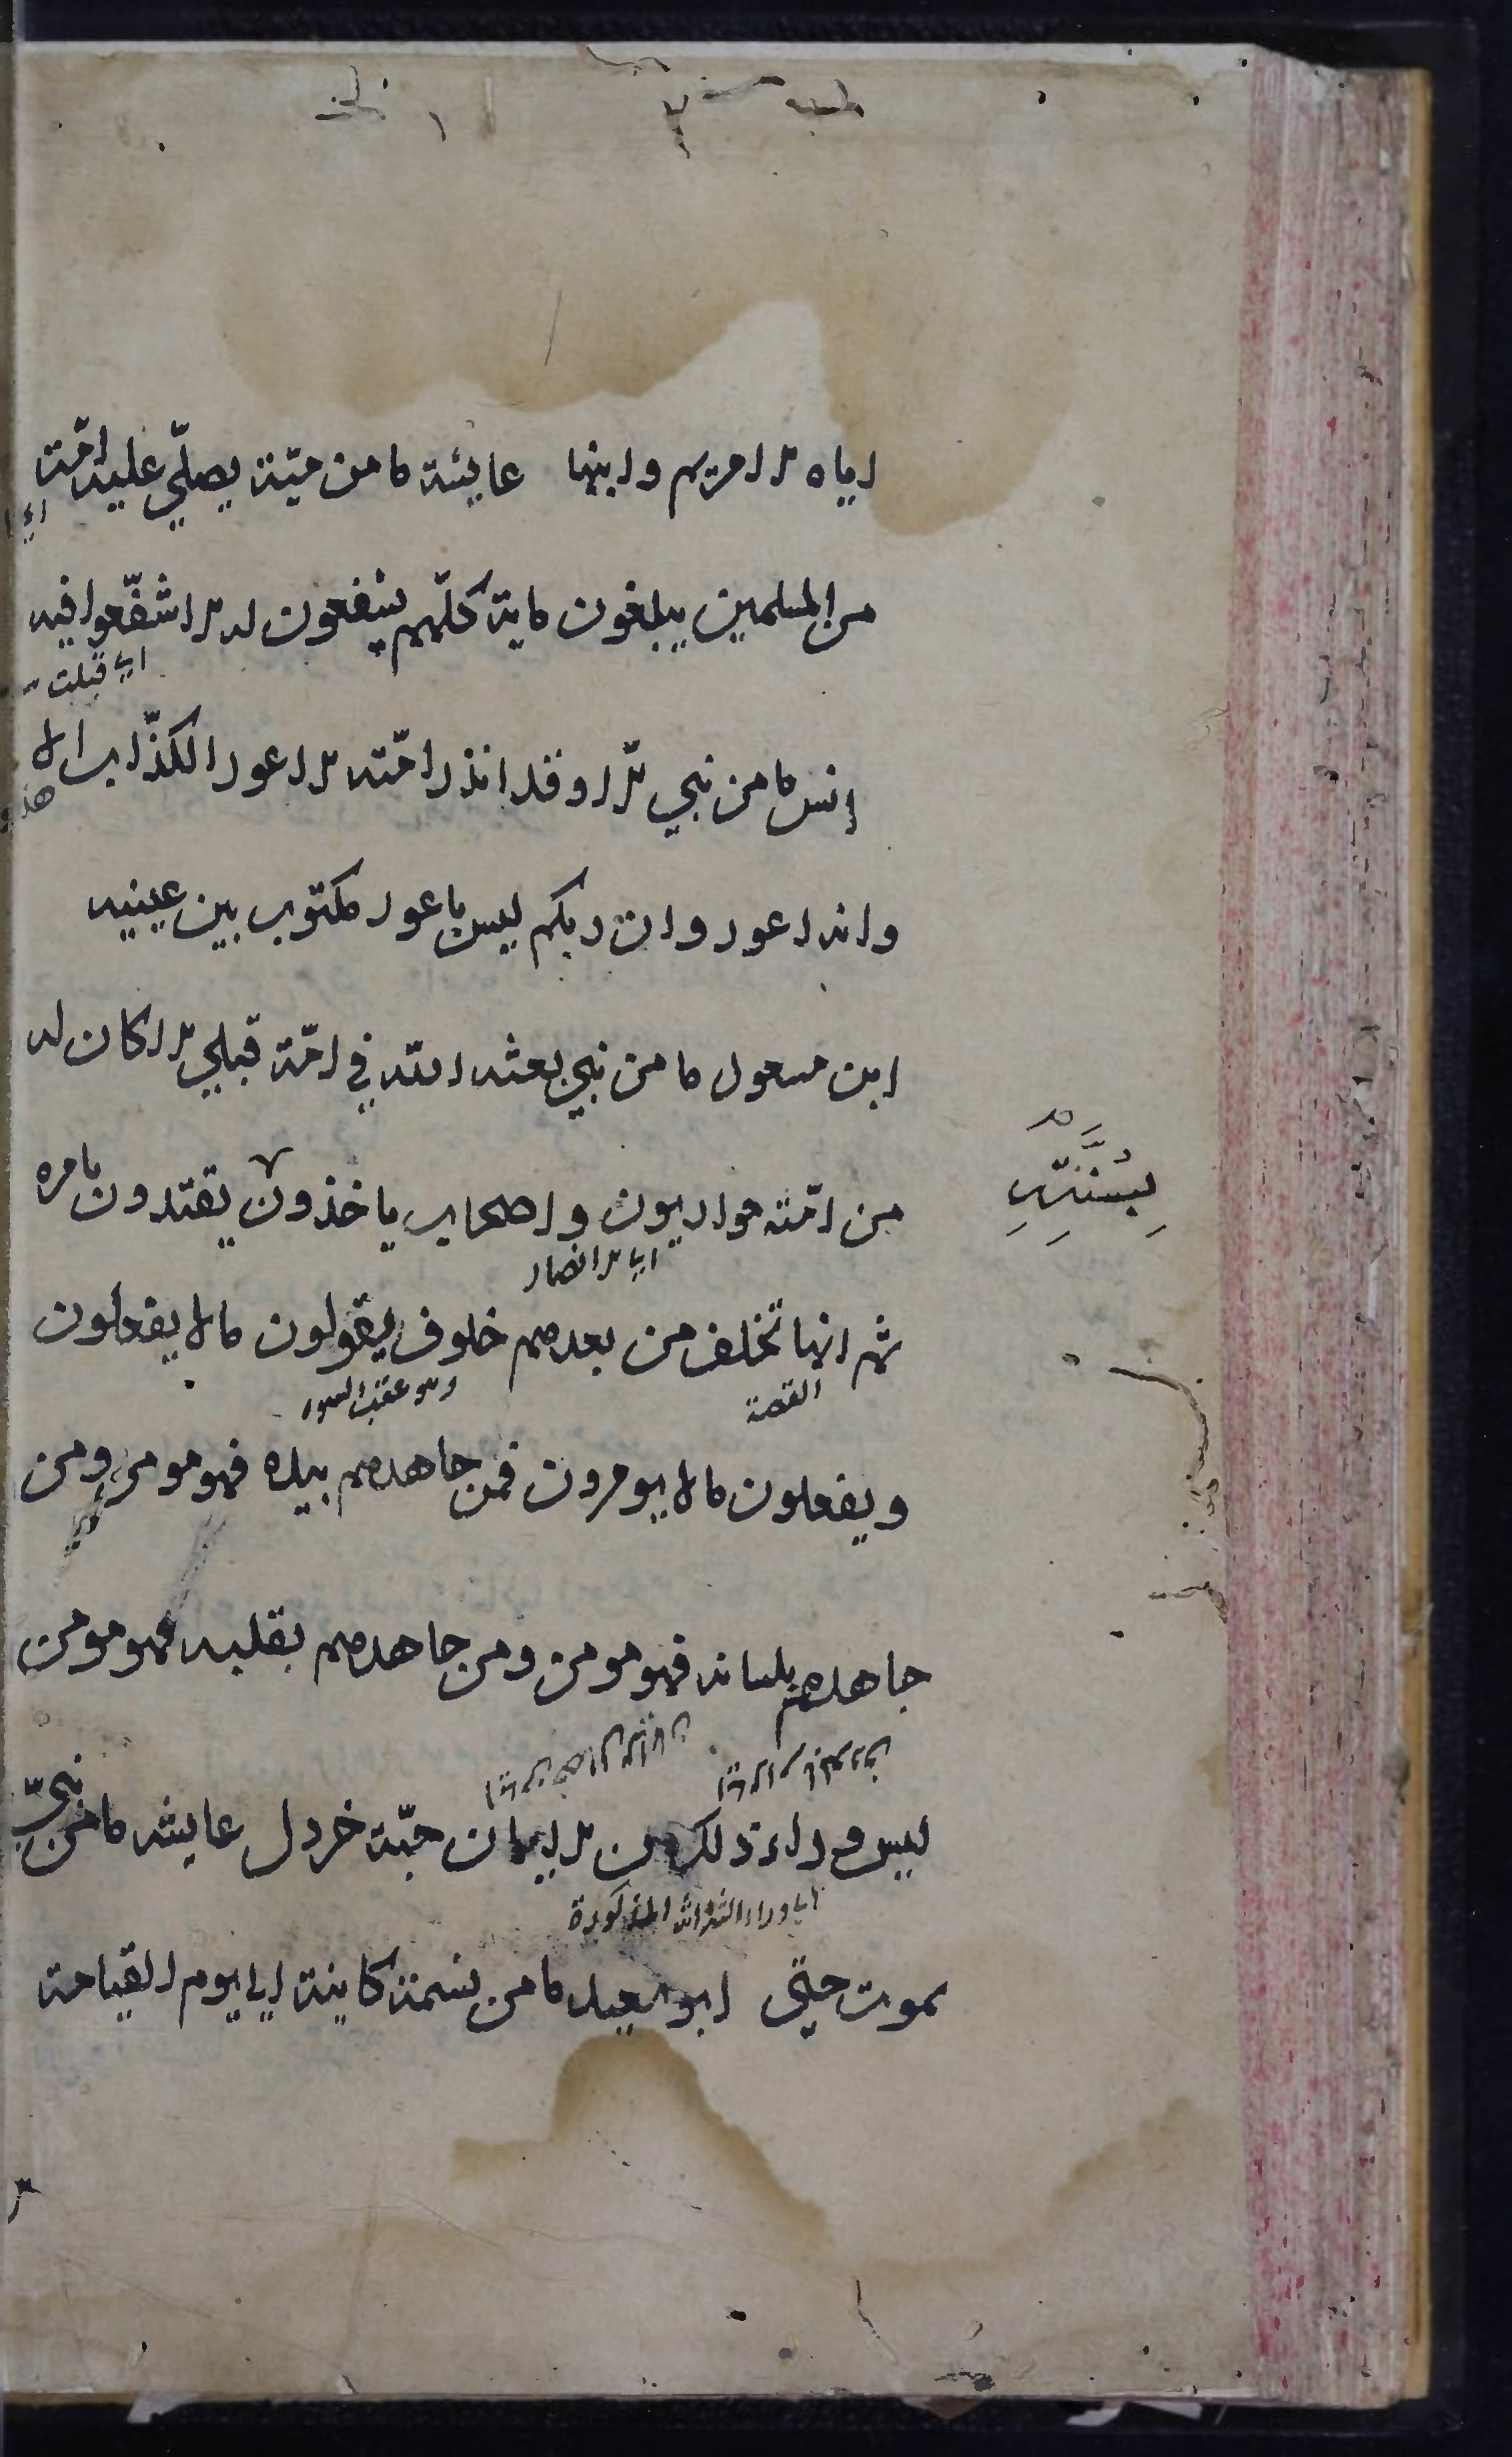 اياه الا مريم وابنها عايشة ما من ميتة يصلي عليه امّة
من المسلمين يبلغون ماية كلّهم يشفعون له الا شفّعوا فيه
اي قبلت
انس ما من نبي الّا وقد انذر امّته الاعور الكذّاب الا
وانه اعور وان ربكم ليس باعور مكتوب بين عينيه
ابن مسعود ما من نبي بعثه الله في امّة قبلي الا كان له
من امّته حواريون واصحاب ياخذون يقتدون بامره
بِسُنَّتِهِ
اي الانصار
ثم انها تخلف من بعدهم خلوف يقولون ما لا يفعلون
القصة
وهو عقب السوء
ويفعلون ما لا يومرون فمن جاهدهم بيده فهو مومن ومن
جاهدهم بلسانه فهو مومن ومن جاهدهم بقلبه فهو مومن
ليس وراء ذلك من الايمان حبّة خردل عايشه ما من نبيّ
اي وراء الثلاثة المذكورة
يموت حتى ابو سعيد ما من نسمة كاينة الي يوم القيامة